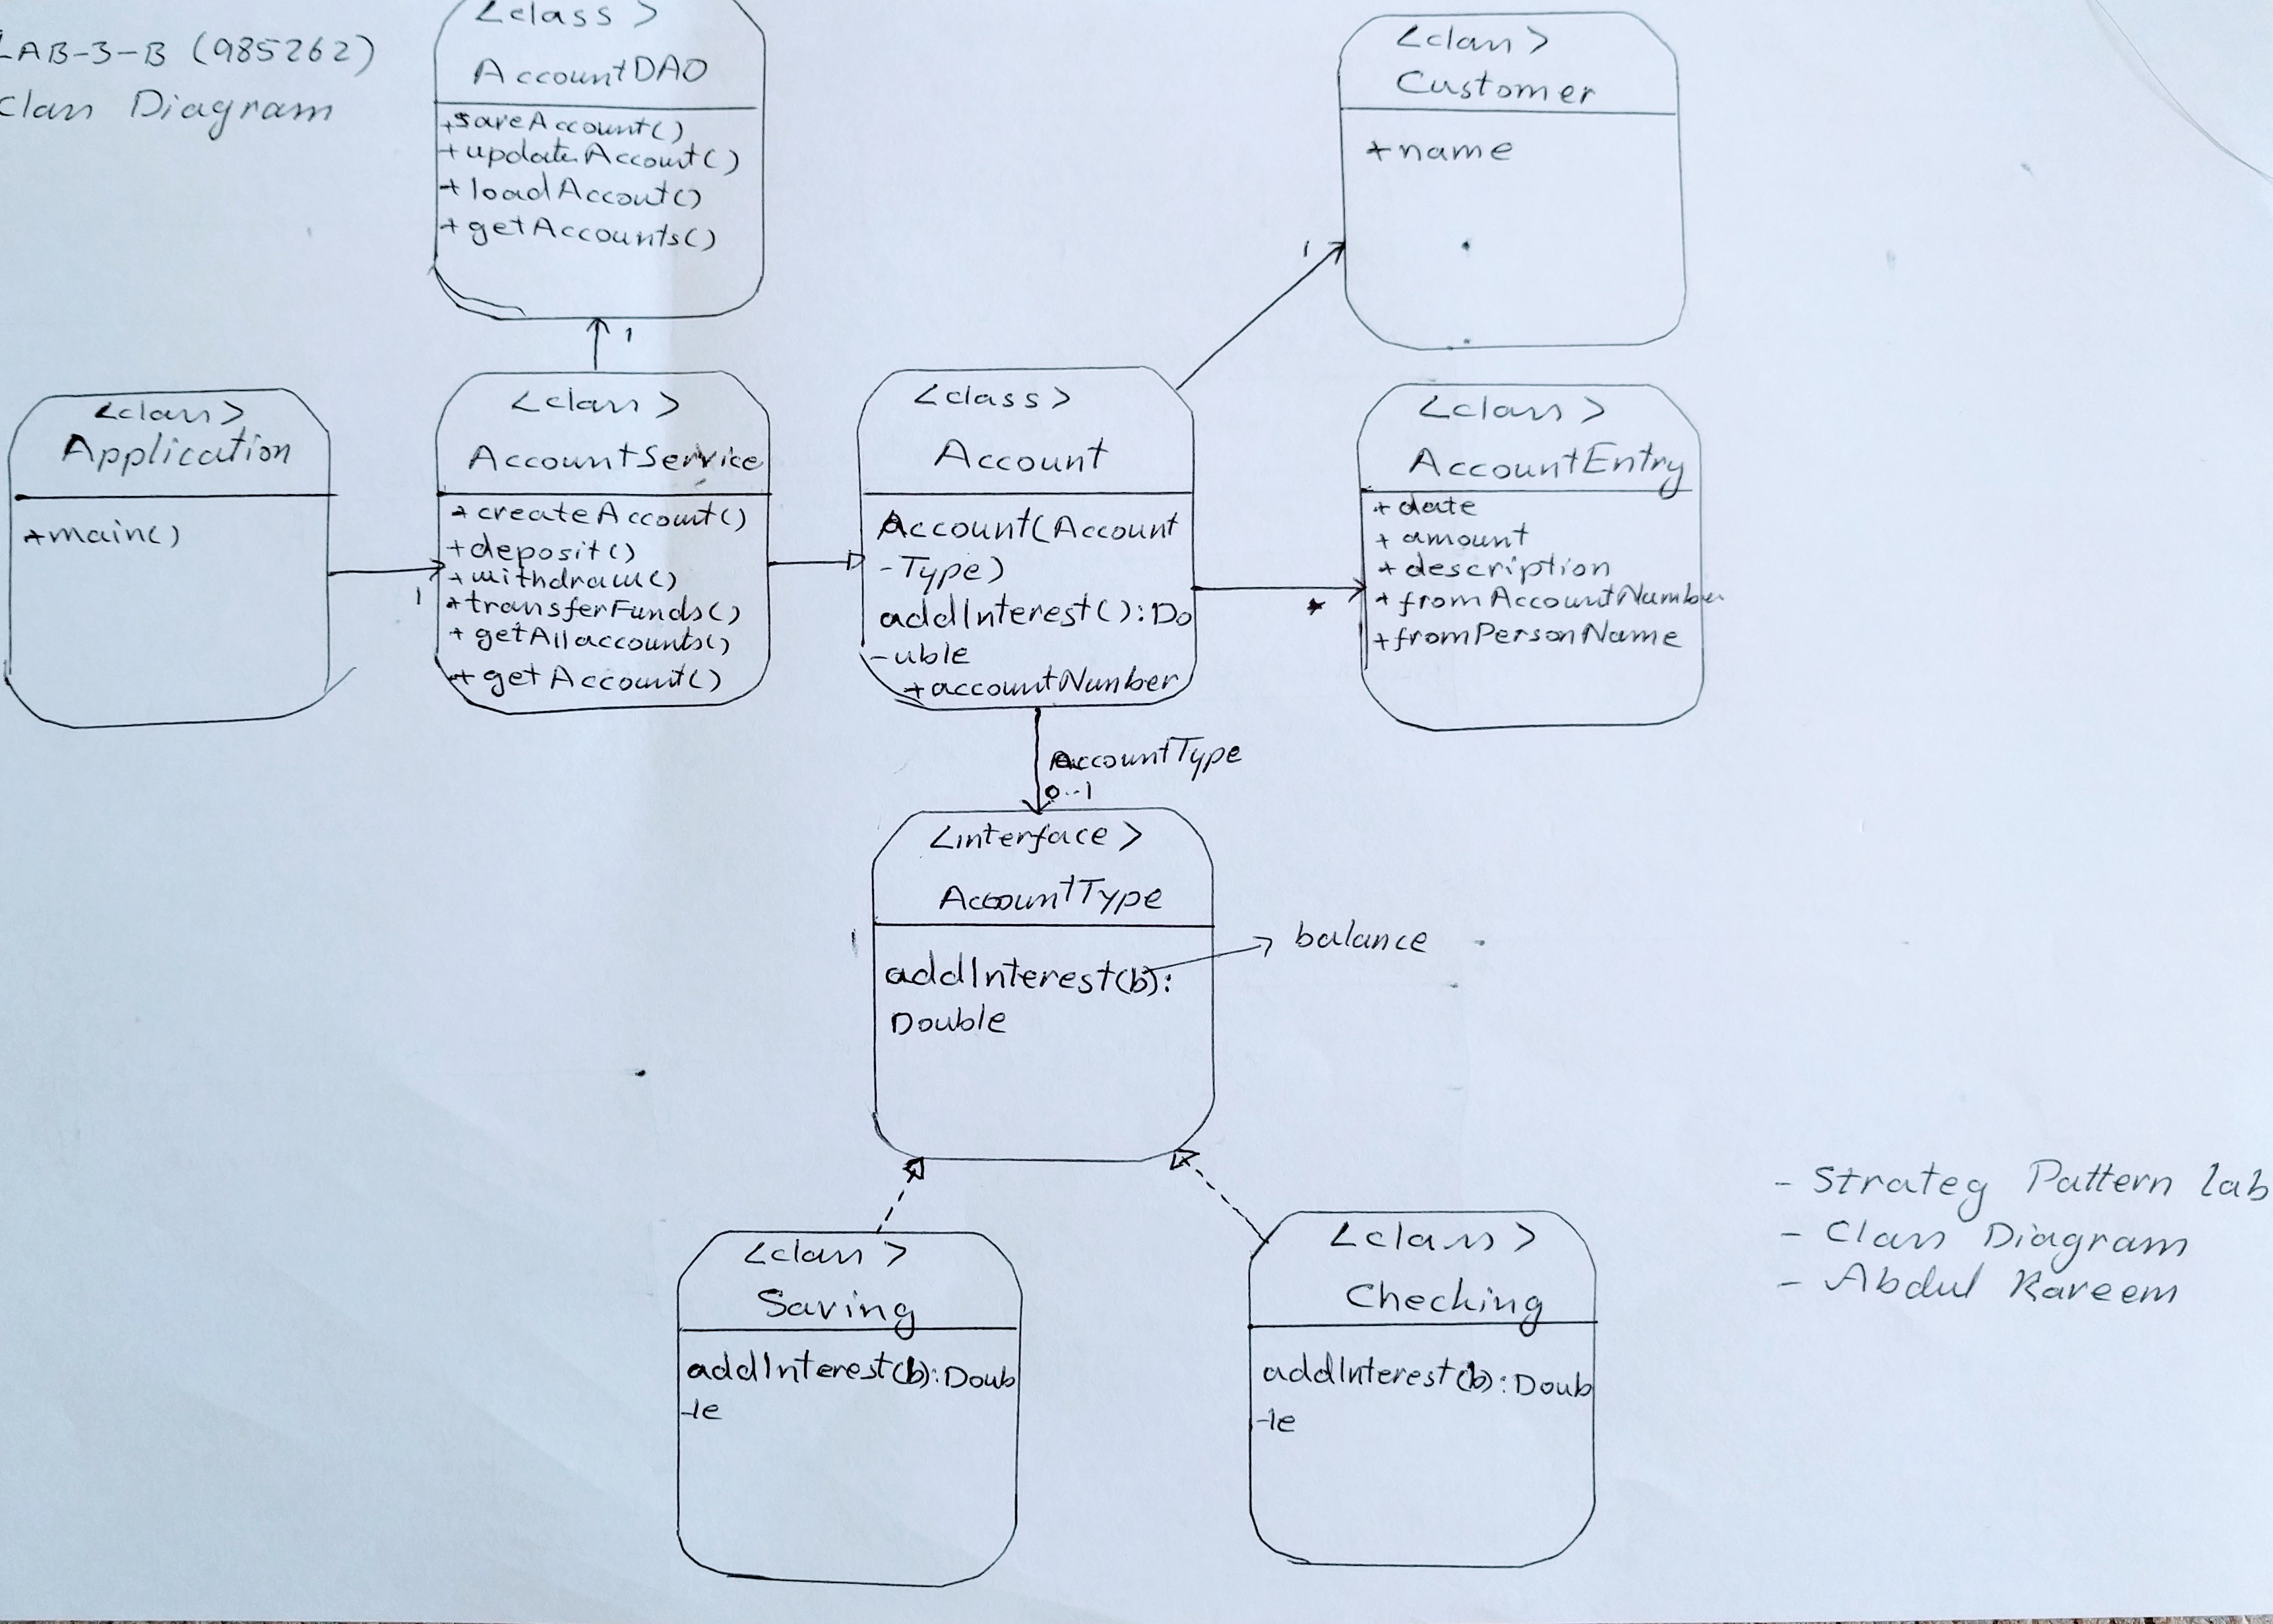 LAB-3-B (985262)
Class Diagram
<class>
AccountDAO
+saveAccount()
+updateAccount()
+loadAccout()
+getAccounts()
1
<class>
Customer
+name
1
<class>
Application
+main()
1
<class>
AccountService
+createAccount()
+deposit()
+withdraw()
+transferFunds()
+getAllaccounts()
+getAccount()
<class>
Account
Account(Account
-Type)
addInterest():Do
-uble
+accountNumber
*
<class>
AccountEntry
+date
+amount
+description
+fromAccountNumber
+fromPersonName
AccountType
0..1
<interface>
AccountType
addInterest(b):
Double
balance
<class>
Saving
addInterest(b):Doub
-le
<class>
Checking
addInterest(b):Doub
-le
- Strateg Pattern lab
- Class Diagram
- Abdul Kareem